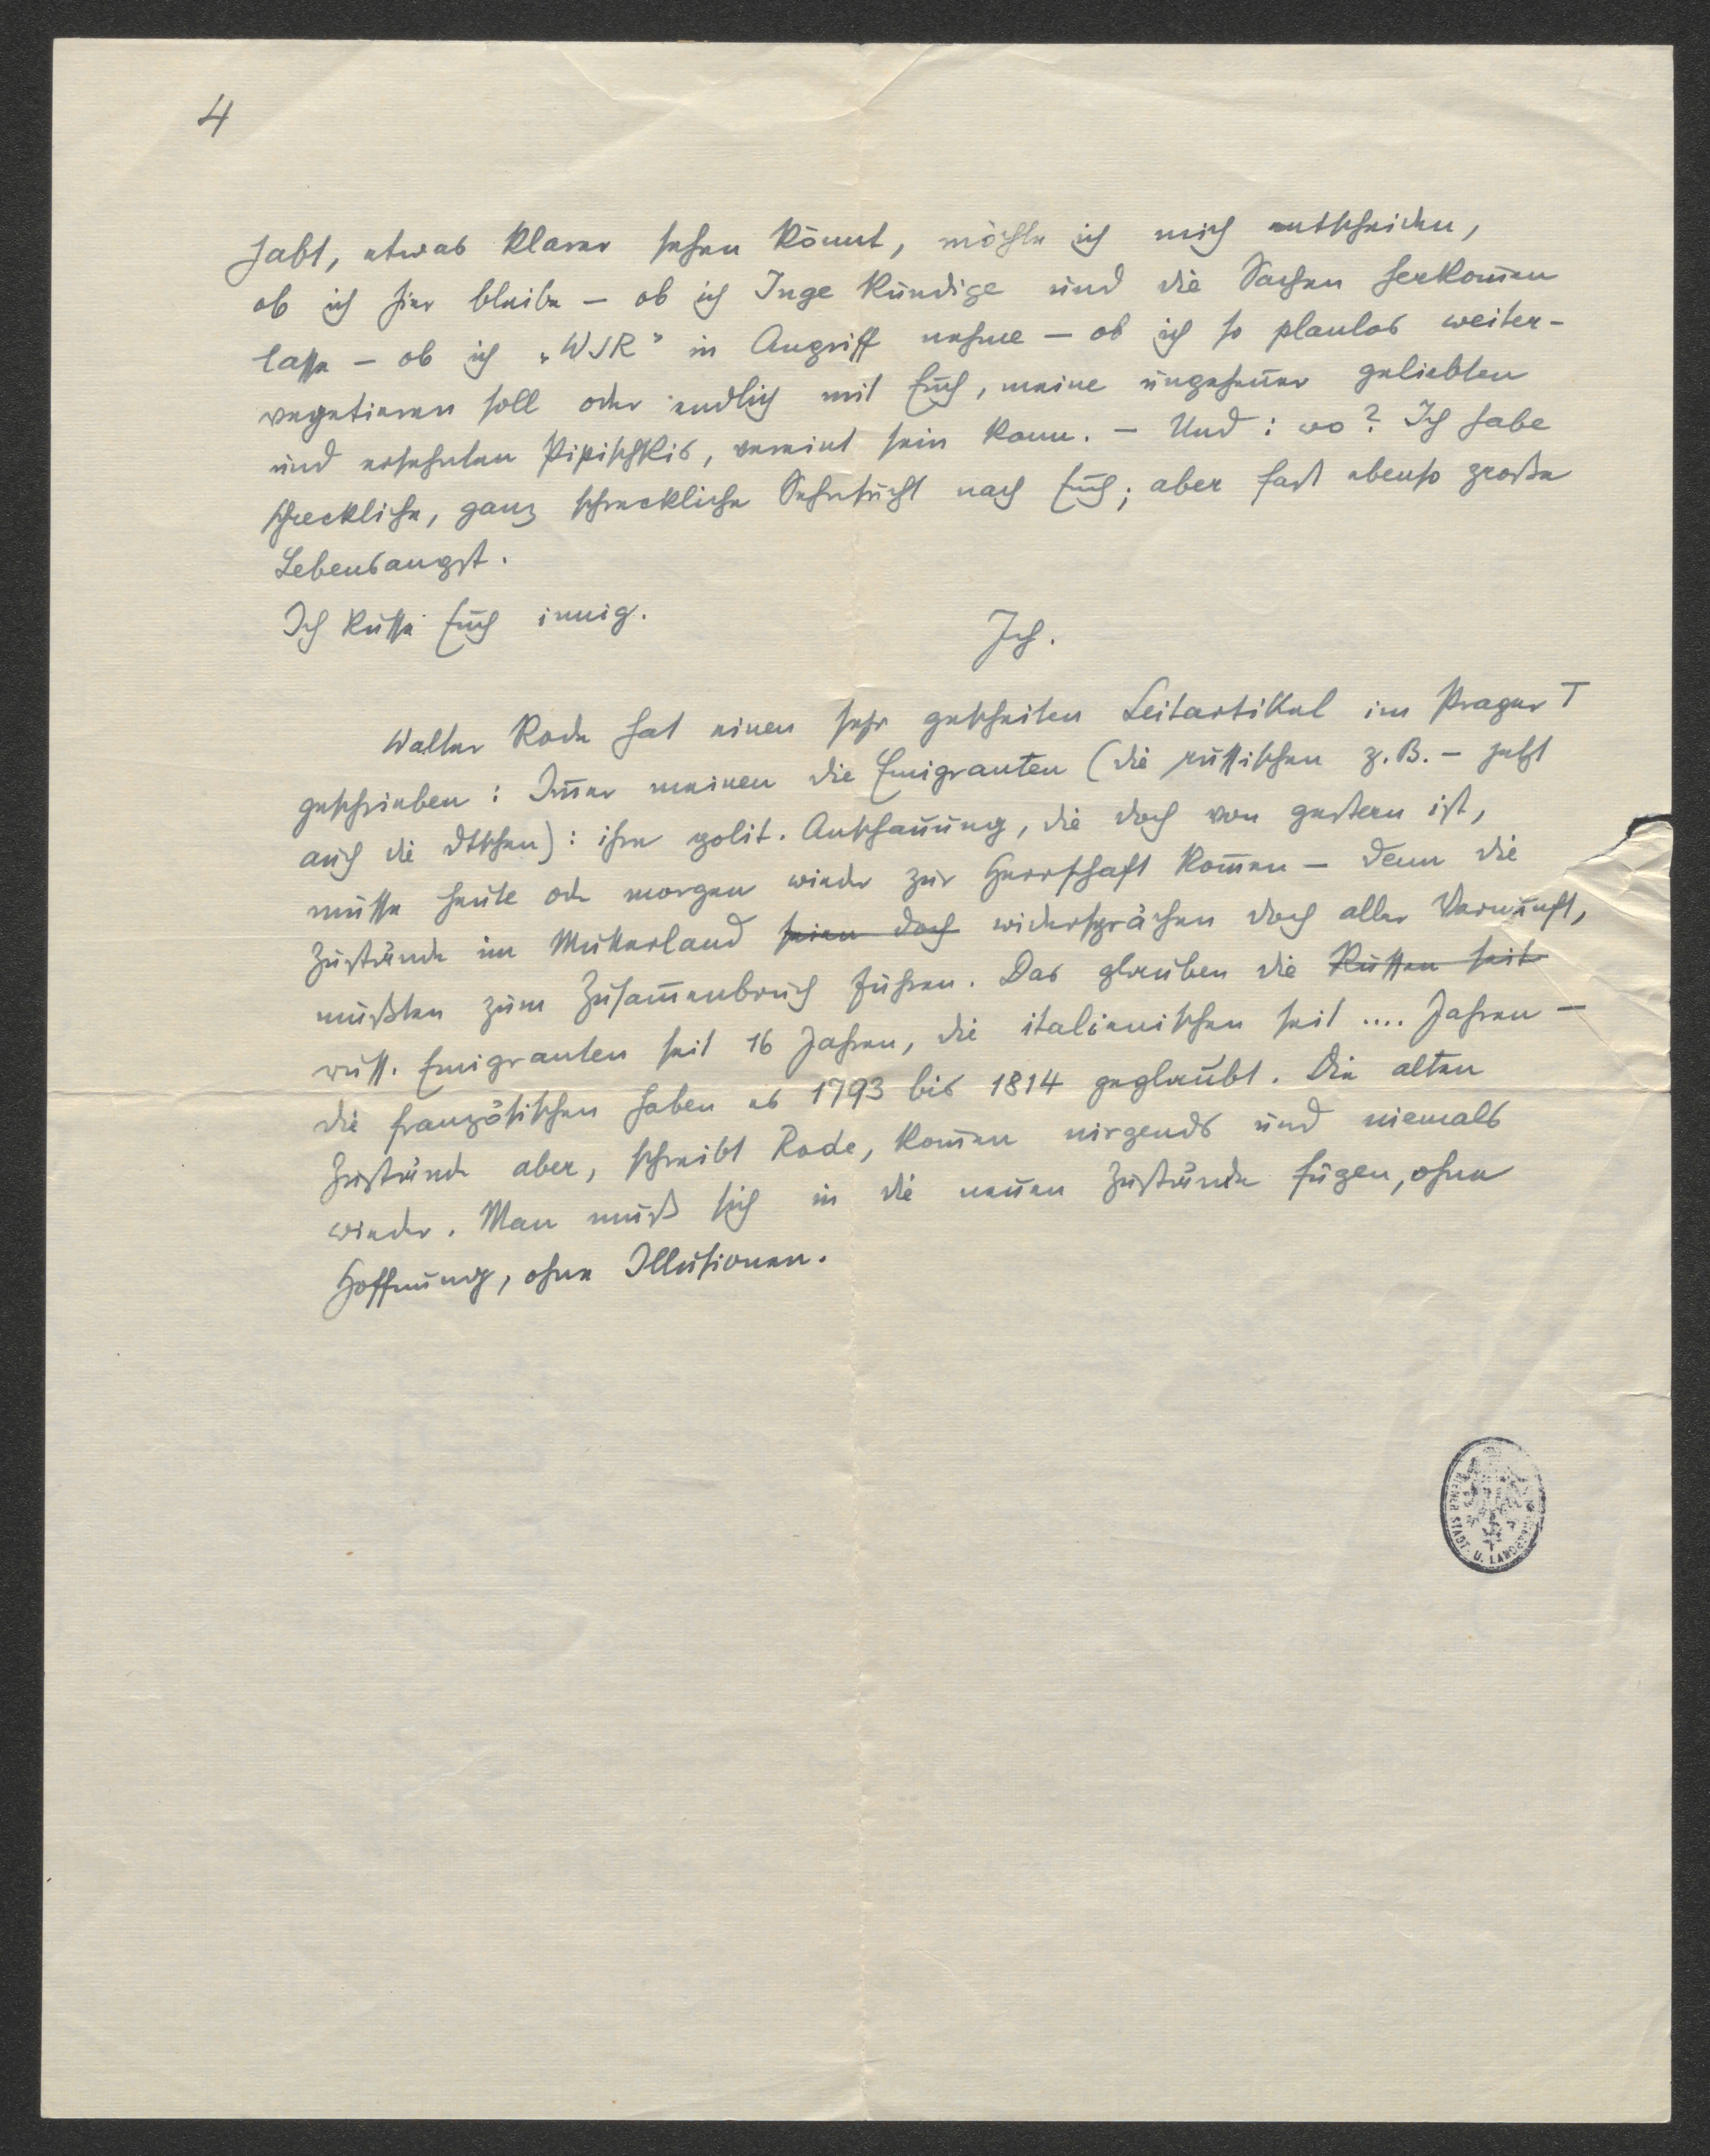 4
habt, etwas klarer sehen könnt, möchte ich mich entscheiden,
ob ich hier bleibe – ob ich Inge kündige und die Sachen herkom̅en
lasse – ob ich „WJR" in Angriff nehme – ob ich so planlos weiter-
vegetieren soll oder endlich mit Euch, meine ungeheuer geliebten
und ersehnten Pipischkis, vereint sein kann. – Und: wo? Ich habe
schreckliche, ganz schreckliche Sehnsucht nach Euch; aber fast ebenso große
Lebensangst.
Ich küsse Euch innig.
Ich.
Walter Rode hat einen sehr gescheiten Leitartikel im Prager T
geschrieben: Im̅er meinen die Emigranten (die russischen z.B. – jetzt
auch die dtschen): ihre polit. Anschauung, die doch von gestern ist,
müsse heute oder morgen wieder zur Herrschaft kom̅en – denn die
Zustände im Mutterland seien doch widersprächen doch aller Vernunft,
müßten zum Zusam̅enbruch führen. Das glauben die Russen seit
russ. Emigranten seit 16 Jahren, die italienischen seit .... Jahren –
die französischen haben es 1793 bis 1814 geglaubt. Die alten
Zustände aber, schreibt Rode, kom̅en nirgends und niemals
wieder. Man muß sich in die neuen Zustände fügen, ohne
Hoffnung, ohne Illusionen.
WIENER STADT- U. LANDESBIBL